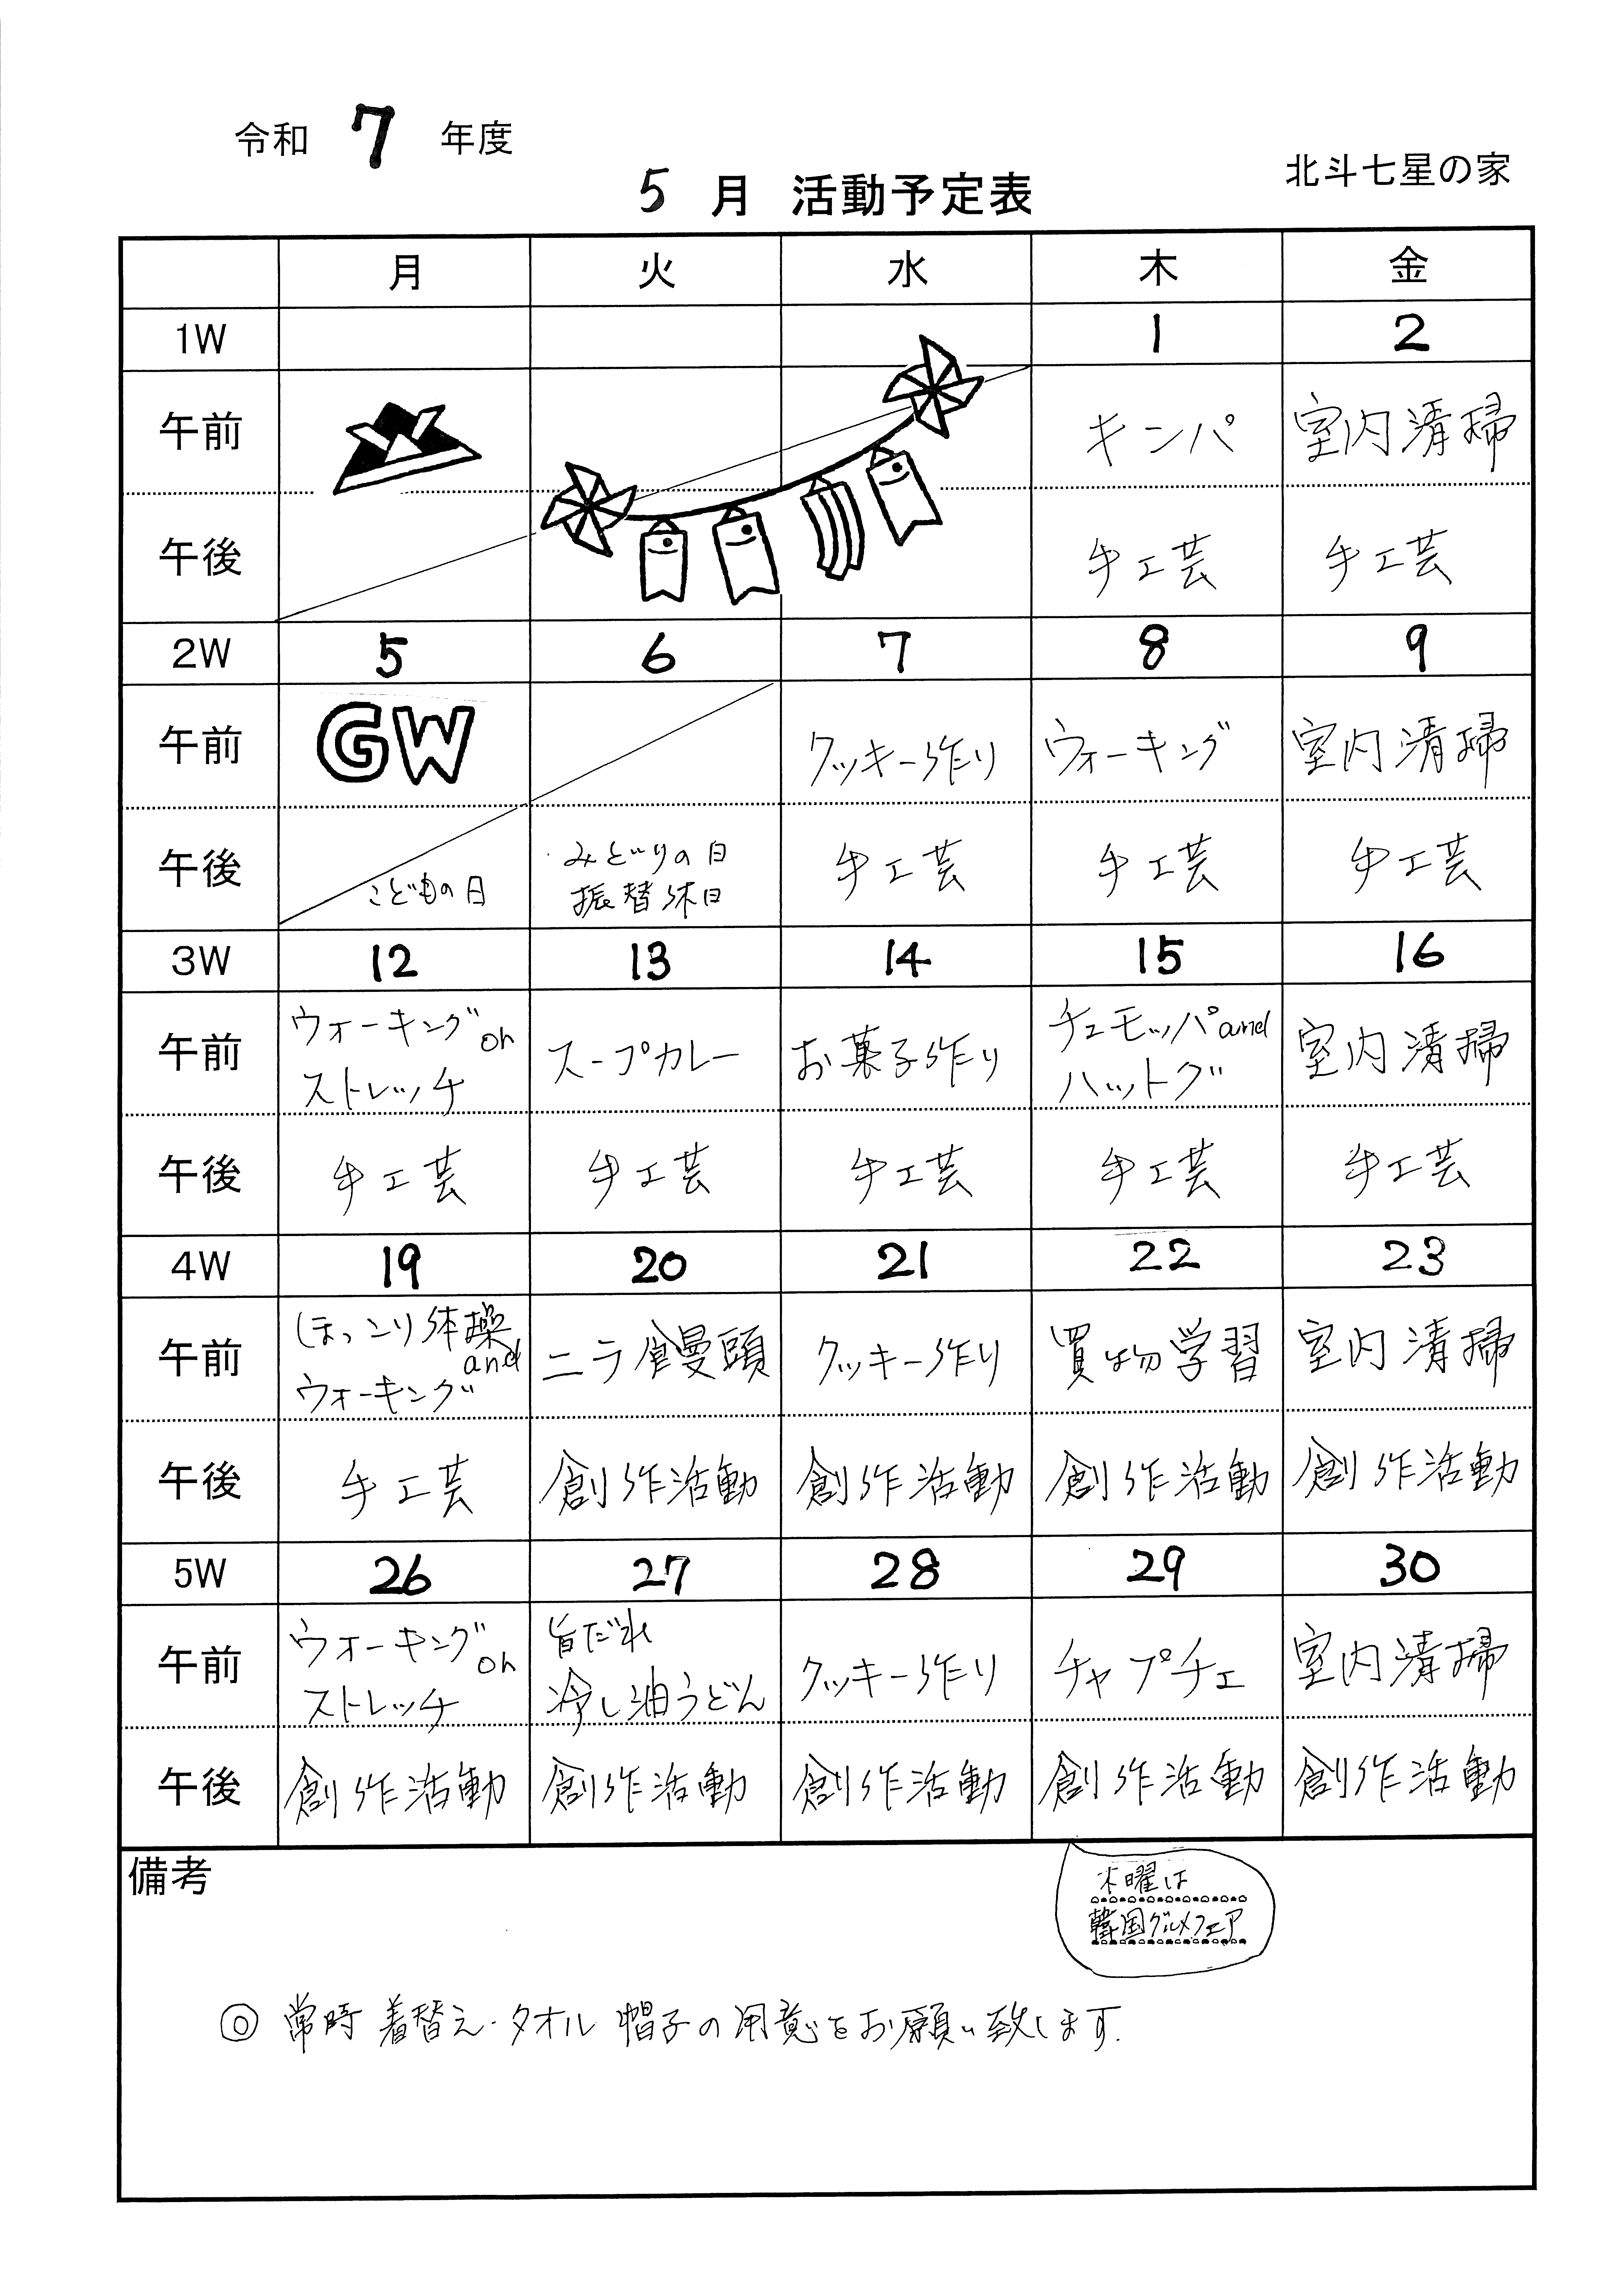 令和 7 年度
北斗七星の家
5 月 活動予定表
月 火 水 木 金
1W 1 2
午前 キンパ 室内清掃
午後 手工芸 手工芸
2W 5 6 7 8 9
午前 GW クッキー作り ウォーキング 室内清掃
午後 こどもの日 みどりの日 手工芸 手工芸 手工芸
振替休日
3W 12 13 14 15 16
午前 ウォーキング or スープカレー お菓子作り チュモッパ and 室内清掃
ストレッチ ハットグ
午後 手工芸 手工芸 手工芸 手工芸 手工芸
4W 19 20 21 22 23
午前 ほっこり体操 and ニラ饅頭 クッキー作り 買物学習 室内清掃
ウォーキング
午後 手工芸 創作活動 創作活動 創作活動 創作活動
5W 26 27 28 29 30
午前 ウォーキング or 旨だれ クッキー作り チャプチェ 室内清掃
ストレッチ 冷し油うどん
午後 創作活動 創作活動 創作活動 創作活動 創作活動
備考
木曜は
韓国グルメフェア
◎ 常時 着替え・タオル 帽子の用意をお願い致します.